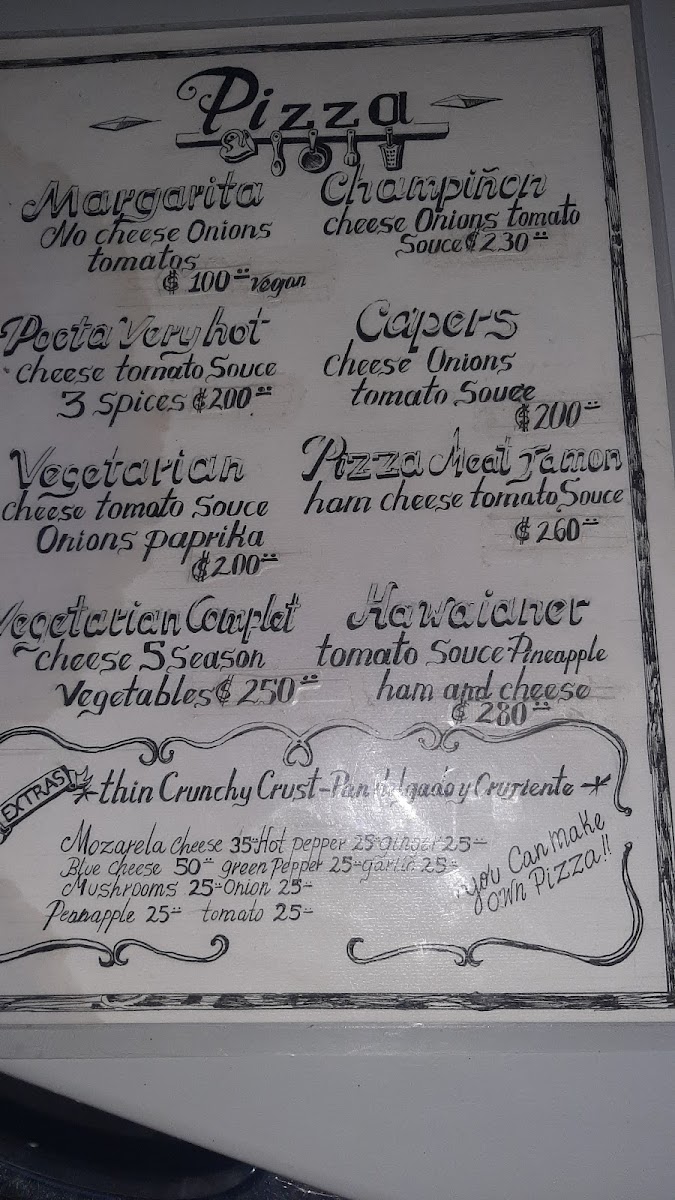 Pizza
Margarita
No cheese Onions
tomatos
₲ 100= vegan
Champiñon
cheese Onions tomato
Souce ₲230=
Poeta Very hot
cheese tomato Souce
3 spices ₲200=
Capers
cheese Onions
tomato Souce
₲200=
Vegetarian
cheese tomato Souce
Onions paprika
₲200=
Pizza Meat Jamon
ham cheese tomato Souce
₲260=
Vegetarian Complet
cheese 5 Season
Vegetables ₲250=
Hawaianer
tomato Souce Pineapple
ham and cheese
₲280=
EXTRAS
thin Crunchy Crust - Pan delgado y Crunriente
Mozarela cheese 35= Hot pepper 25= ginger 25=
Blue cheese 50= green Pepper 25= garlic 25=
Mushrooms 25= Onion 25=
Peanapple 25= tomato 25=
you Can make
own Pizza!!